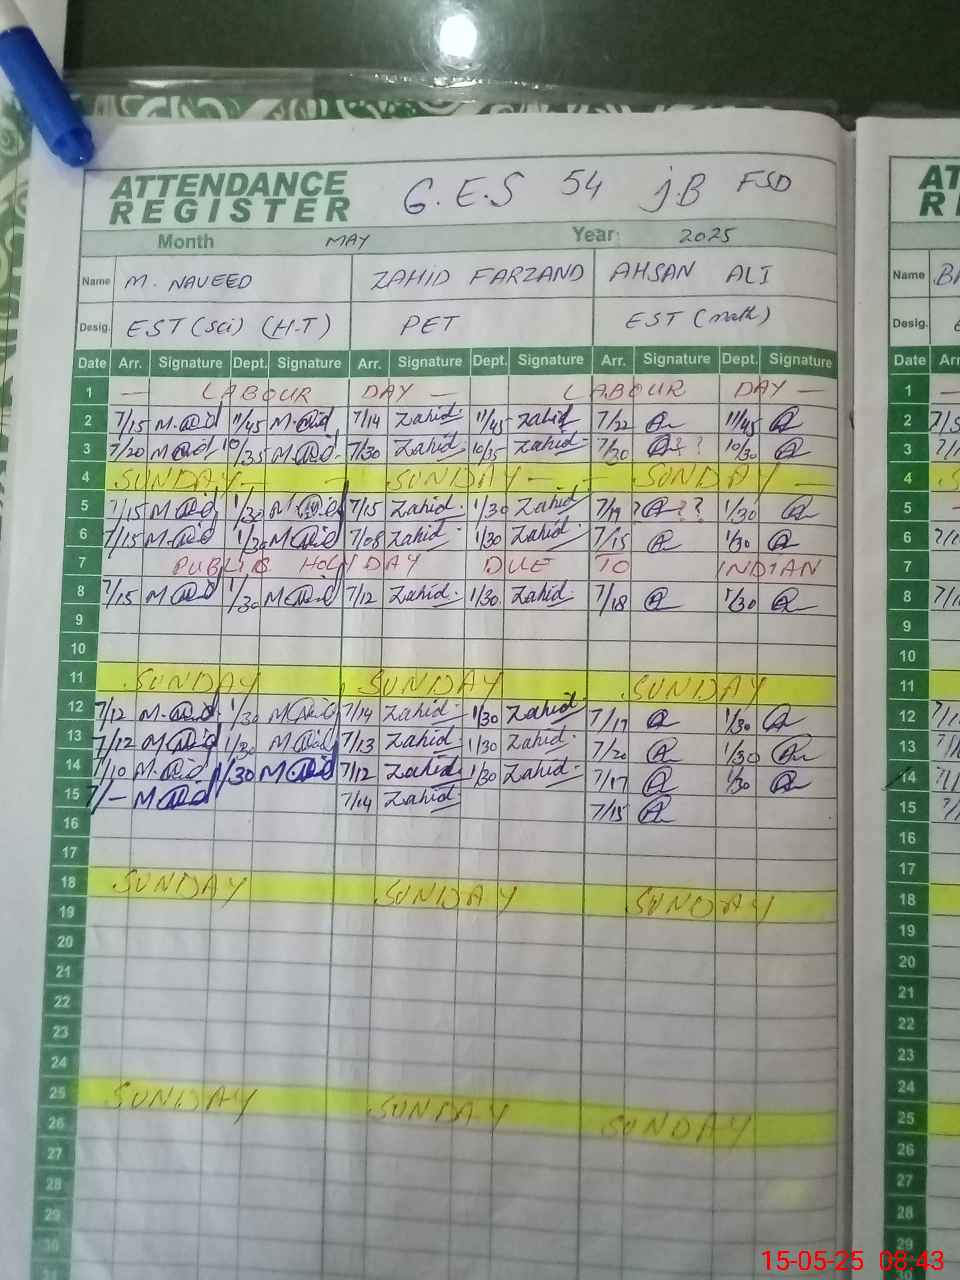 ATTENDANCE REGISTER G.E.S 54 JB FSD
Month MAY Year: 2025
Name M. NAVEED ZAHID FARZAND AHSAN ALI
Desig. EST (sci) (H.T) PET EST (math)
Date Arr. Signature Dept. Signature Arr. Signature Dept. Signature Arr. Signature Dept. Signature
1 — LABOUR DAY — LABOUR DAY —
2 7/15 11/45 7/14 Zahid 11/45 Zahid 7/22 11/45
3 7/20 10/35 7/30 Zahid 10/35 Zahid 7/20 ? ? 10/30
4 SUNDAY — SUNDAY — SUNDAY —
5 7/15 1/30 7/15 Zahid 1/30 Zahid 7/19 ? ? ? 1/30
6 7/15 1/30 7/08 Zahid 1/30 Zahid 7/15 1/30
7 PUBLIC HOLIDAY DUE TO INDIAN
8 7/15 1/30 7/12 Zahid 1/30 Zahid 7/18 1/30
9
10
11 SUNDAY SUNDAY SUNDAY
12 7/12 1/30 7/14 Zahid 1/30 Zahid 7/17 1/30
13 7/12 1/30 7/13 Zahid 1/30 Zahid 7/20 1/30
14 7/10 1/30 7/12 Zahid 1/30 Zahid 7/17 1/30
15 7/— 7/14 Zahid 7/15
16
17
18 SUNDAY SUNDAY SUNDAY
19
20
21
22
23
24
25 SUNDAY SUNDAY SUNDAY
26
27
28
29
30
AT
R
Name
Desig.
Date Arr
1
2
3
4
5
6
7
8
9
10
11
12
13
14
15
16
17
18
19
20
21
22
23
24
25
26
27
28
29
15-05-25 08:43